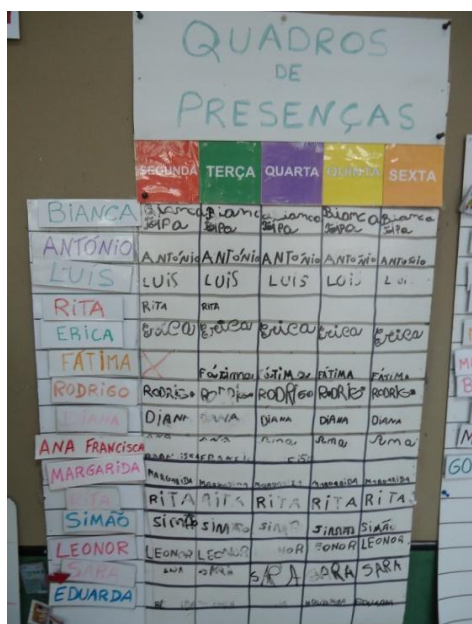 QUADROS
DE
PRESENÇAS
SEGUNDA TERÇA QUARTA QUINTA SEXTA
BIANCA Bianca Bianca Bianca Bianca Bianca
ANTÓNIO ANTÓNIO ANTÓNIO ANTÓNIO ANTÓNIO ANTÓNIO
LUÍS LUÍS LUÍS LUÍS LUÍS
RITA RITA RITA
ERICA Erica Erica Erica Erica Erica
FÁTIMA X Fátima FÁTIMA FÁTIMA FÁTIMA
RODRIGO RODRIGO RODRIGO RODRIGO RODRIGO RODRIGO
DIANA DIANA DIANA DIANA DIANA
ANA FRANCISCA Ana Ana Ana
MARGARIDA MARGARIDA MARGARIDA MARGARIDA MARGARIDA MARGARIDA
RITA RITA RITA RITA RITA RITA
SIMÃO SIMÃO SIMÃO SIMÃO SIMÃO
LEONOR LEONOR LEONOR LEONOR
SARA SARA SARA SARA SARA
EDUARDA EDUARDA